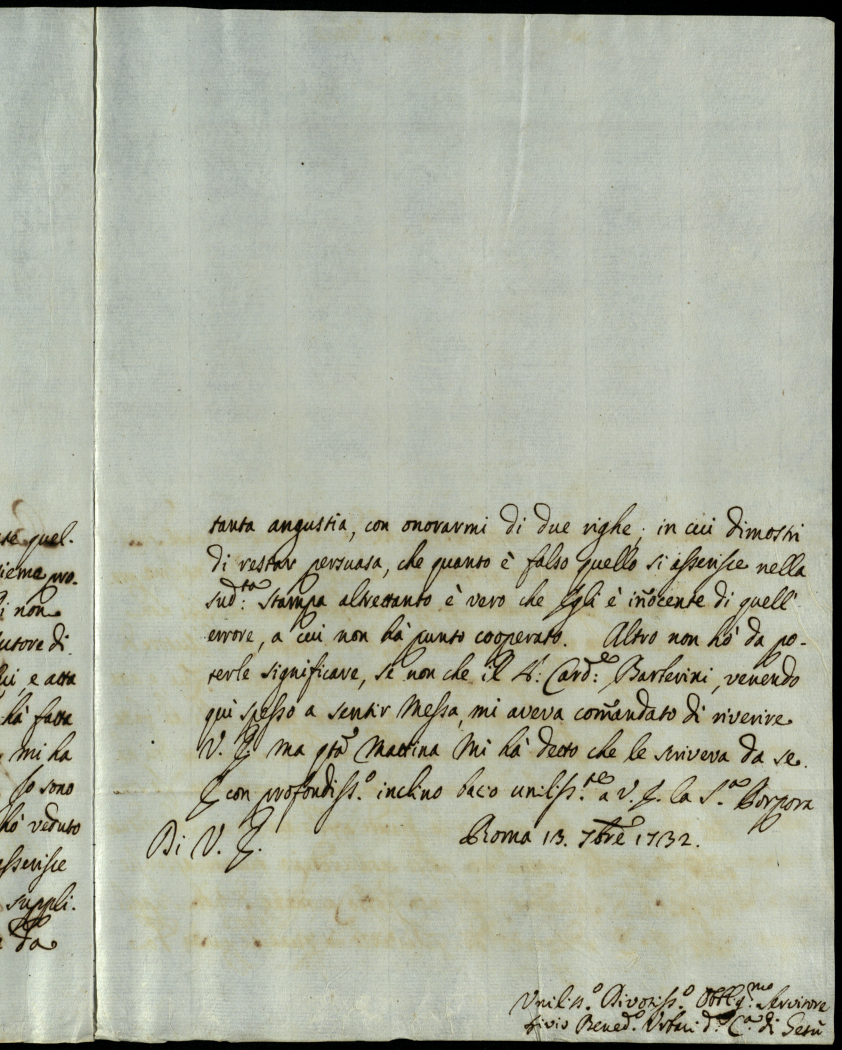 te quel-
sieme pro-
di non
utore di
ui, e atta
hà fatta
mi ha
Io sono
hò veduto
asserisce
suppli-
da
tanta angustia, con onorarmi di due righe, in cui dimostri
di restar persuasa, che quanto è falso quello si asserisce nella
sud:ta stampa altrettanto è vero che Egli è iñocente di quell'
errore, a cui non hà punto cooperato. Altro non hò da po-
terle significare, se non che il S: Card:e Barberini, venendo
quì spesso a sentir Messa, mi aveva com̃andato di riverire
V. E. ma q̃ta Mattina mi hà detto che le scriveva da se.
E con profondiss.o inclino bacio umiliss.te a V. E. la S.a Porpora
Di V. E. Roma 13. 7bre 1732.
Umiliss.o Divotiss.o Obblig.mo Servitore
Livio Bened.o Urbani d.a C.a di Gesù